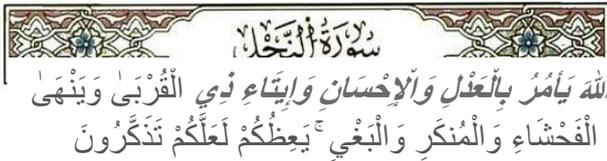 سورة النحل
الله يَأْمُرُ بِالْعَدْلِ وَالْإِحْسَانِ وَإِيتَاءِ ذِي الْقُرْبَىٰ وَيَنْهَىٰ
الْفَحْشَاءِ وَالْمُنكَرِ وَالْبَغْيِ ۚ يَعِظُكُمْ لَعَلَّكُمْ تَذَكَّرُونَ